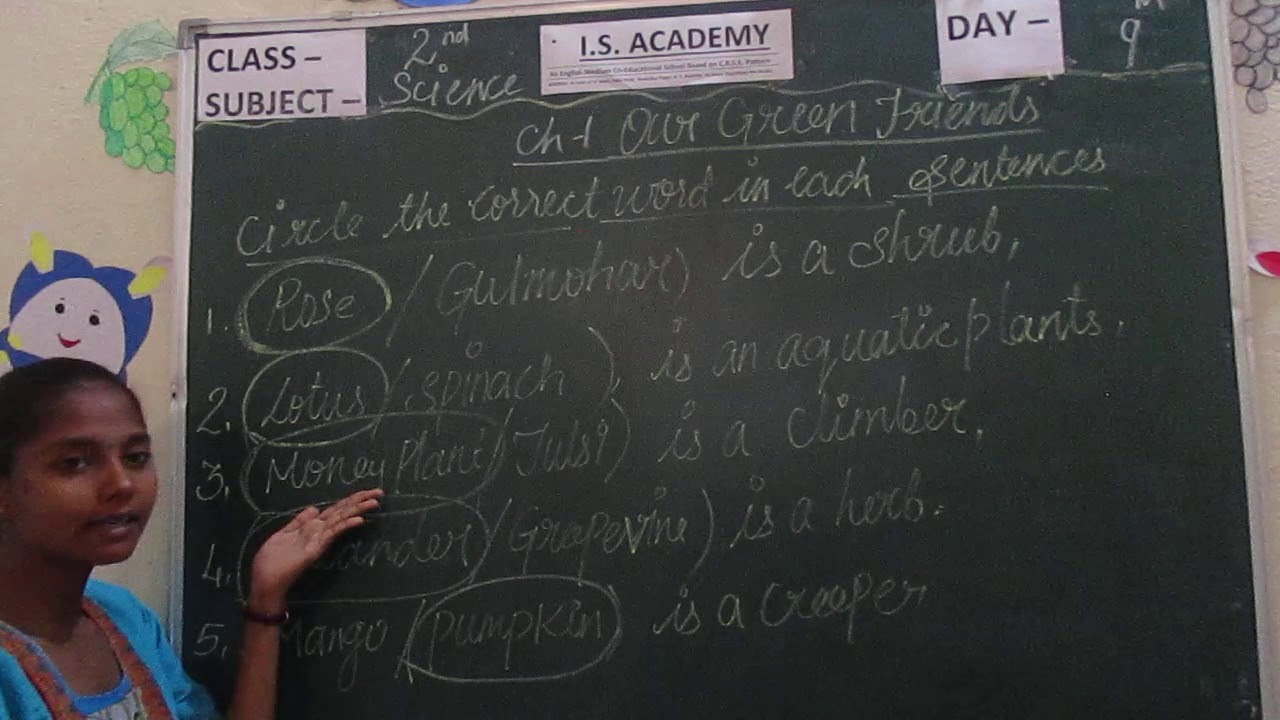 CLASS – 2nd
SUBJECT – Science
I.S. ACADEMY
An English Medium Co-Educational School Based on C.B.S.E. Pattern
DAY – 9
Ch-1 Our Green Friends
Circle the correct word in each sentences
1. Rose / Gulmohar) is a shrub,
2. Lotus / spinach), is an aquatic plants.
3. Money Plant / Tulsi) is a climber,
4. ander / Grapevine) is a herb.
5. Mango / pumpkin is a creeper